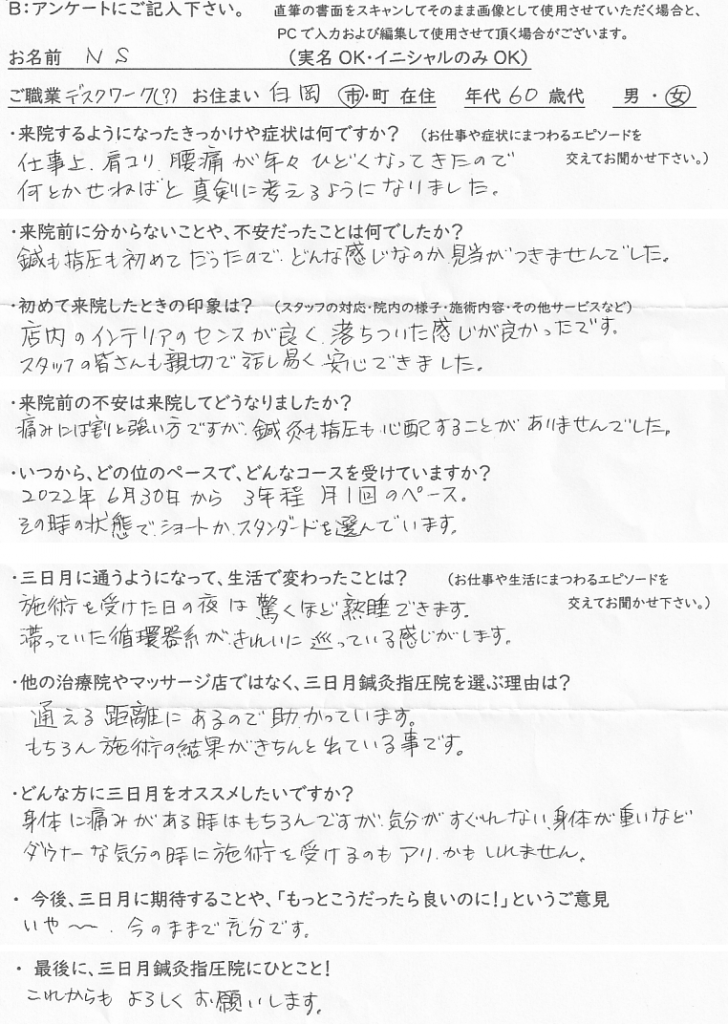 B：アンケートにご記入下さい。
直筆の書面をスキャンしてそのまま画像として使用させていただく場合と、
PCで入力および編集して使用させて頂く場合がございます。
お名前 NS （実名OK・イニシャルのみOK）
ご職業 デスクワーク(?) お住まい 白岡 市・町 在住 年代 60 歳代 男・女
・来院するようになったきっかけや症状は何ですか？ （お仕事や症状にまつわるエピソードを
交えてお聞かせ下さい。）
仕事上、肩コリ、腰痛が年々ひどくなってきたので
何とかせねばと真剣に考えるようになりました。
・来院前に分からないことや、不安だったことは何でしたか？
鍼も指圧も初めてだったので、どんな感じなのか見当がつきませんでした。
・初めて来院したときの印象は？ （スタッフの対応・院内の様子・施術内容・その他サービスなど）
店内のインテリアのセンスが良く、落ちついた感じが良かったです。
スタッフの皆さんも親切で話し易く安心できました。
・来院前の不安は来院してどうなりましたか？
痛みには割と強い方ですが、鍼灸も指圧も心配することがありませんでした。
・いつから、どの位のペースで、どんなコースを受けていますか？
2022年6月30日から 3年程 月1回のペース。
その時の状態で、ショートか、スタンダードを選んでいます。
・三日月に通うようになって、生活で変わったことは？ （お仕事や生活にまつわるエピソードを
交えてお聞かせ下さい。）
施術を受けた日の夜は驚くほど熟睡できます。
滞っていた循環器系が、きれいに巡っている感じがします。
・他の治療院やマッサージ店ではなく、三日月鍼灸指圧院を選ぶ理由は？
通える距離にあるので助かっています。
もちろん施術の結果がきちんと出ている事です。
・どんな方に三日月をオススメしたいですか？
身体に痛みがある時はもちろんですが、気分がすぐれない、身体が重いなど
ダウナーな気分の時に施術を受けるのもアリ、かもしれません。
・ 今後、三日月に期待することや、「もっとこうだったら良いのに！」というご意見
いや〜〜、今のままで充分です。
・ 最後に、三日月鍼灸指圧院にひとこと！
これからもよろしくお願いします。